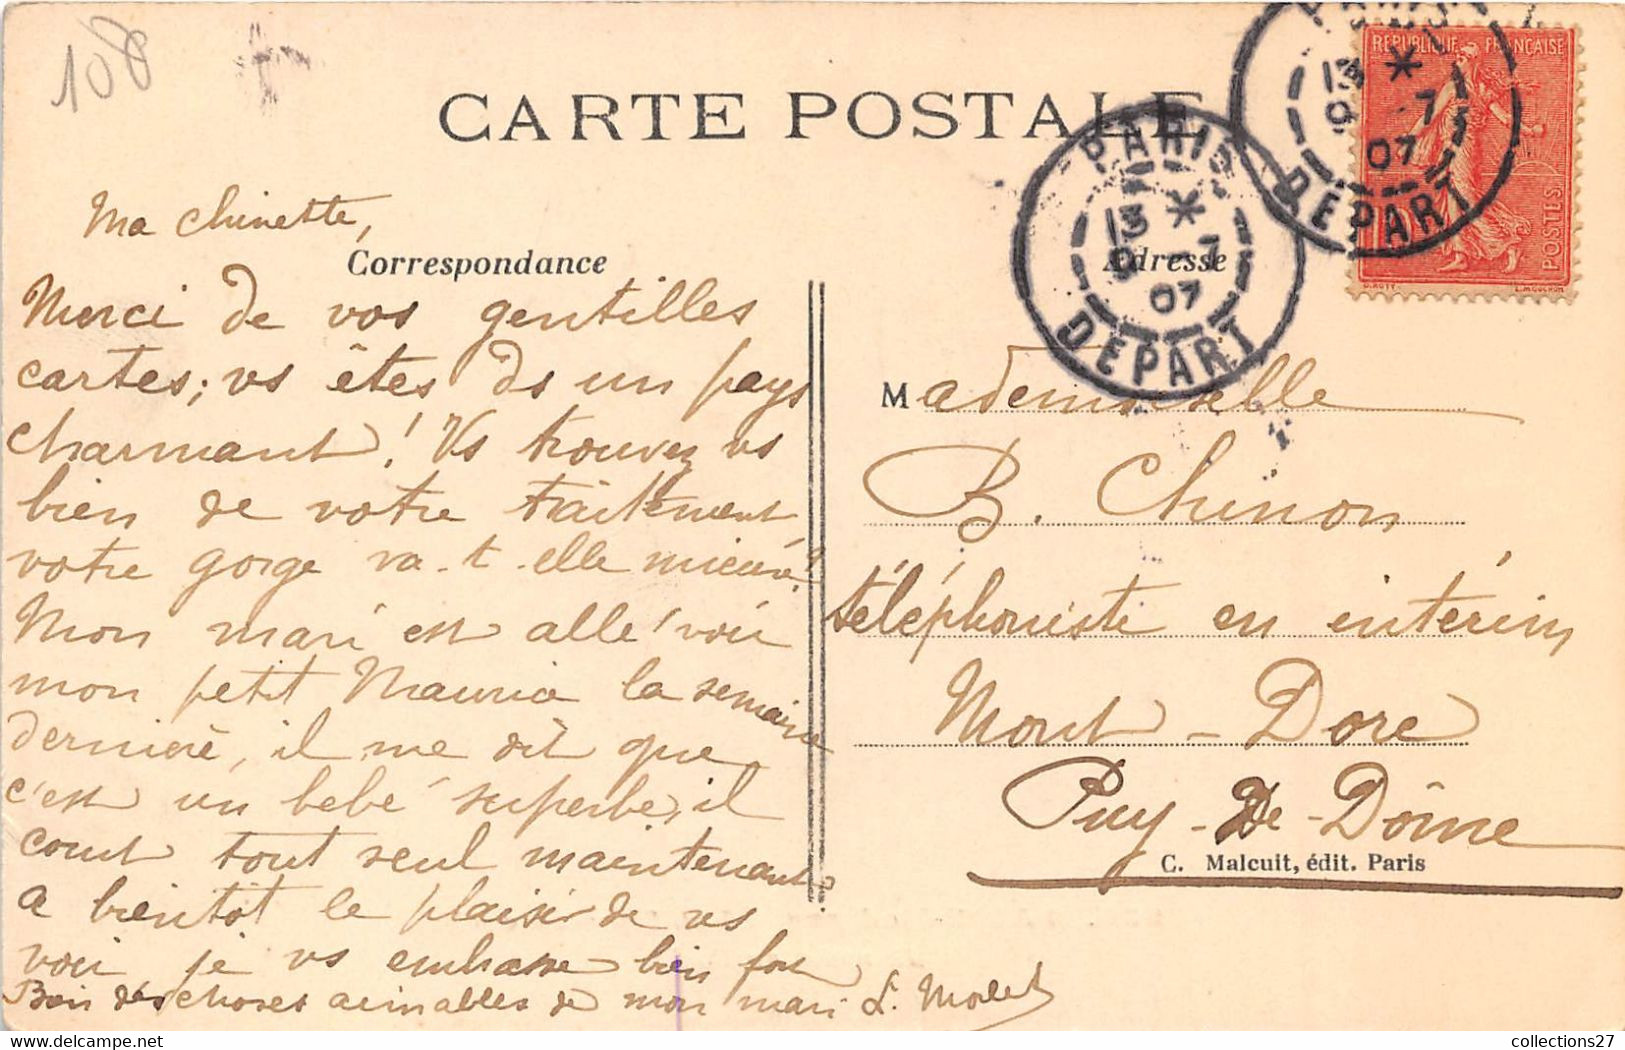 108
CARTE POSTALE
PARIS
13 *
9 -7
07
DEPART
PARIS
13 *
9 -7
07
DEPART
REPUBLIQUE FRANCAISE
POSTES
10
O. ROTY L. MOUCHON
Ma Chinette,
Correspondance
Merci de vos gentilles
cartes; vs êtes ds un pays
charmant! Vs trouvez vs
bien de votre traitement
votre gorge va-t-elle mieux?
Mon mari est allé voir
mon petit Maurice la semaine
dernière, il me dit que
c'est un bébé superbe, il
court tout seul maintenant
A bientôt le plaisir de vs
voir, je vs embrasse bien fort
Bien des choses aimables de mon mari L.
Adresse
Mademoiselle
B. Chinon
téléphoniste en intérim
Mont-Dore
Puy-De-Dôme
C. Malcuit, édit. Paris
collections27